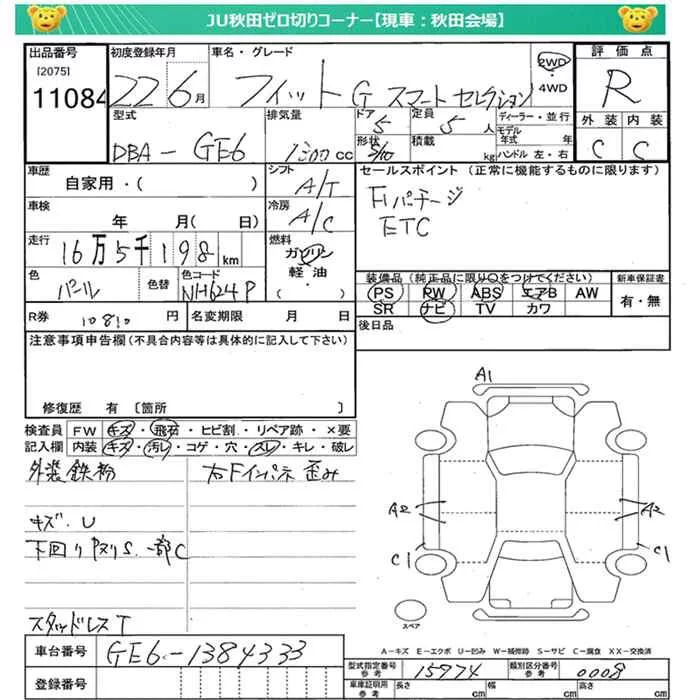 JU秋田ゼロ切りコーナー【現車：秋田会場】
出品番号 初度登録年月 車名・グレード 2WD・4WD 評価点
[2075]
11084 22年6月 フィット G スマートセレクション R
型式 排気量 ドア 5 定員 5人 ディーラー・並行 外装 内装
DBA-GE6 1300cc 形状 5/D 積載 kg モデル年式 年 ハンドル 左・右 C C
車歴 シフト セールスポイント (正常に機能するものに限ります)
自家用・( ) A/T
車検 冷房 ETC
年 月(日) A/C
走行 燃料
16万5千198km ガソリン
軽油・( )
色 色替 色コード 装備品 (純正品に限り○をつけてください) 新車保証書
パール NH624P PS PW ABS エアB AW 有・無
SR ナビ TV カワ
R券 10810円 名変期限 月 日 後日品
注意事項申告欄(不具合内容等は具体的に記入して下さい)
修復歴 有 〔箇所 〕
検査員記入欄 FW キズ・飛石・ヒビ割・リペア跡・×要
内装 キズ・汚レ・コゲ・穴・スレ・キレ・破レ
外装鉄粉 右Fインパネ歪み
キズ.U
下回り サビS.一部C
スタッドレスT
A1
A2 A2
C1 C1
スペア
A-キズ E-エクボ U-凹み W-補修跡 S-サビ C-腐食 XX-交換済
車台番号 GE6-1384333
登録番号
型式指定番号 参考 15974 類別区分番号 参考 0008
車庫証明用 参考 長さ cm 幅 cm 高さ cm